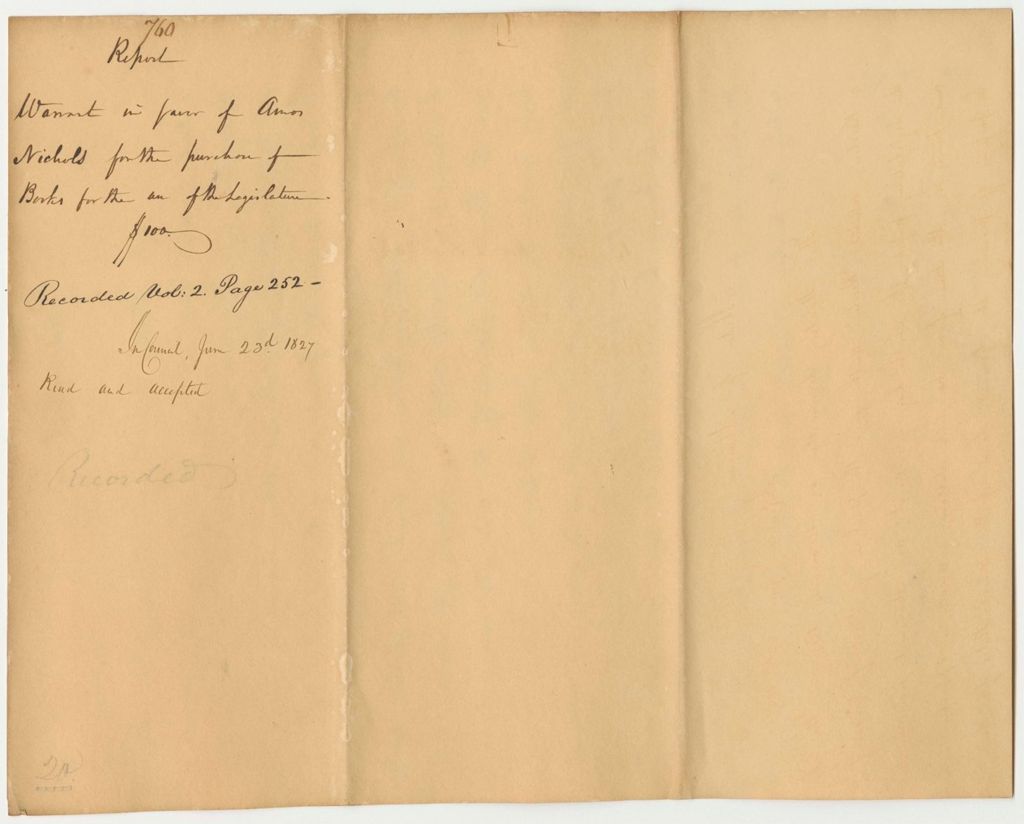 760
Report
Warrant in favor of Amos
Nichols for the purchase of
Books for the use of the Legislature.
$100.
Recorded Vol: 2. Page 252 -
In Council, June 23d 1827
Read and accepted
Recorded